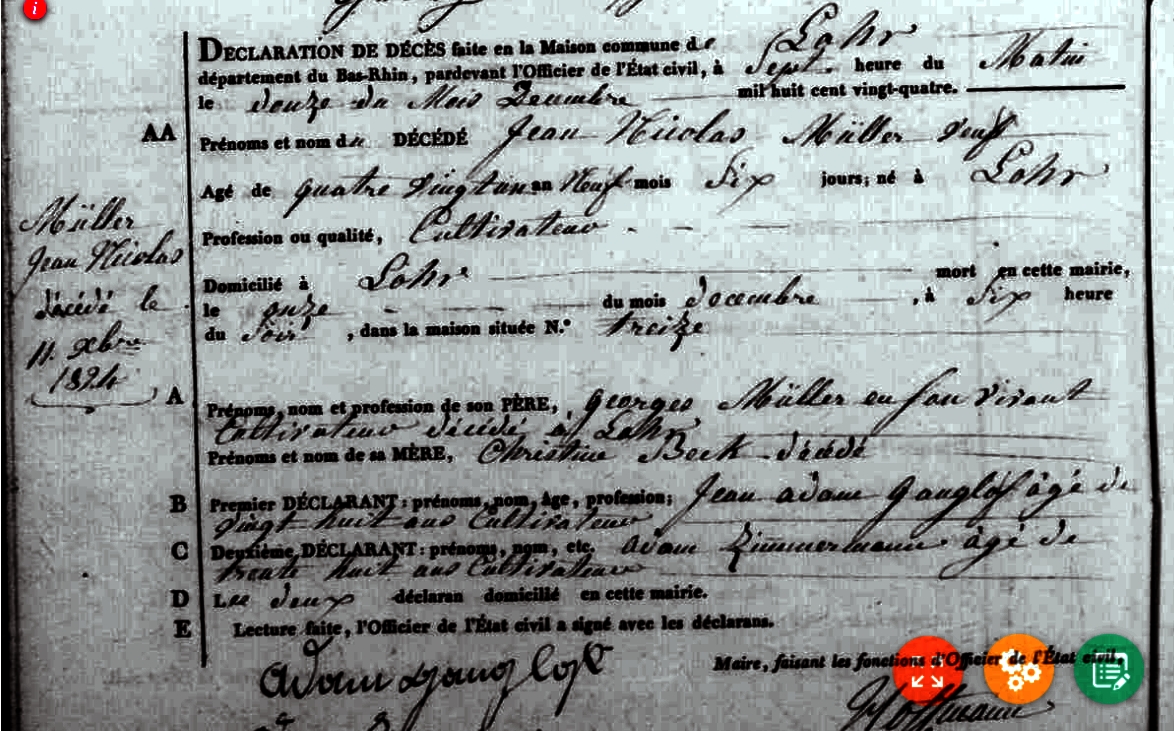 DECLARATION DE DÉCÈS faite en la Maison commune de Lohr
département du Bas-Rhin, pardevant l'Officier de l'État civil, à Sept heure du Matin
le douze du Mois Decembre mil huit cent vingt-quatre.
AA Prénoms et nom du DÉCÉDÉ Jean Nicolas Müller veuf
Agé de quatre vingt un an Neuf mois Six jours; né à Lohr
Profession ou qualité, Cultivateur
Domicilié à Lohr mort en cette mairie,
le onze du mois decembre, à Six heure
du Soir, dans la maison située N.° treize
Müller
Jean Nicolas
décédé le
11. xbre
1824
A Prénoms, nom et profession de son PÈRE, georges Müller en son vivant
Cultivateur décédé a Lohr
Prénoms et nom de sa MÈRE, Christine Beck décédé
B Premier DÉCLARANT: prénoms, nom, âge, profession; Jean adam gangloff âgé de
vingt huit ans Cultivateur
C Deuxième DÉCLARANT: prénoms, nom, etc. adam Zimmermann âgé de
trente huit ans Cultivateur
D Les deux déclaran domicilié en cette mairie.
E Lecture faite, l'Officier de l'État civil a signé avec les déclarans.
Maire, faisant les fonctions d'Officier de l'État civil,
adam gangloff
Hoffmann